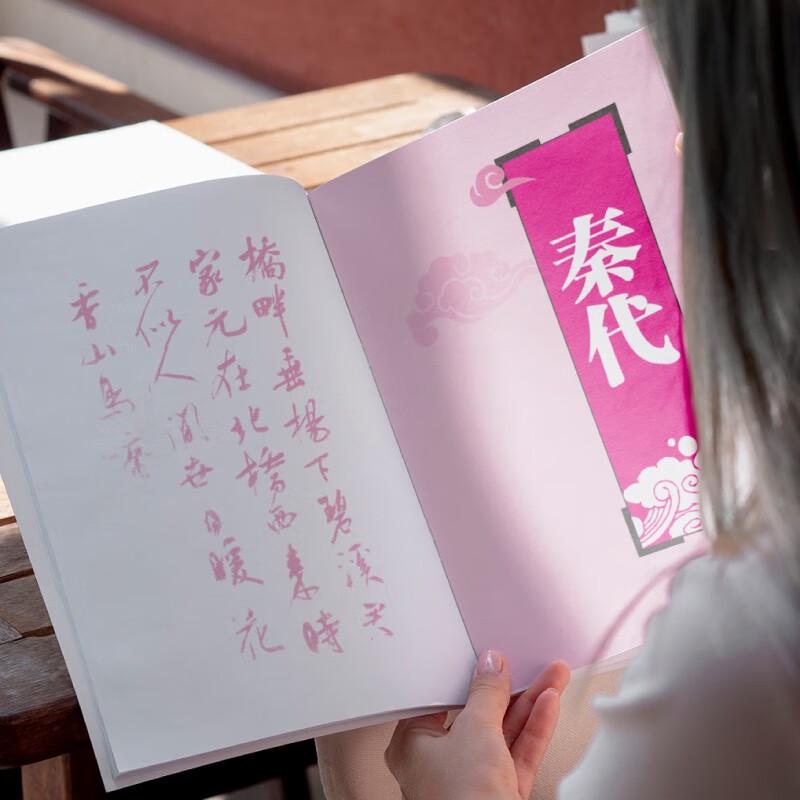 橋畔垂楊下碧溪君
家元在北橋西来時
不似人間世日暖花
香山鳥啼
秦代